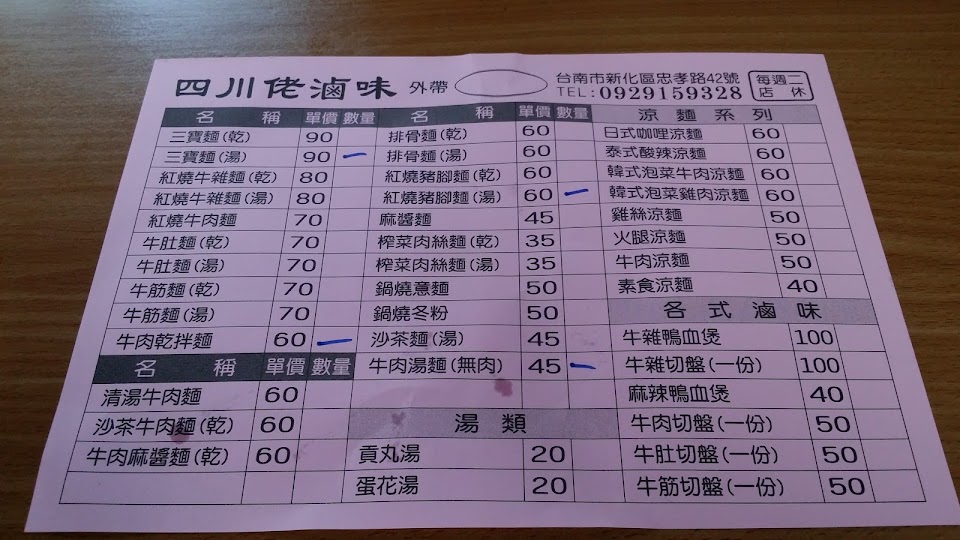 四川佬滷味 外帶 台南市新化區忠孝路42號 每週二店休
TEL:0929159328
名稱 單價 數量 名稱 單價 數量 涼麵系列
三寶麵(乾) 90 排骨麵(乾) 60 日式咖哩涼麵 60
三寶麵(湯) 90 一 排骨麵(湯) 60 泰式酸辣涼麵 60
紅燒牛雜麵(乾) 80 紅燒豬腳麵(乾) 60 韓式泡菜牛肉涼麵 60
紅燒牛雜麵(湯) 80 紅燒豬腳麵(湯) 60 一 韓式泡菜雞肉涼麵 60
紅燒牛肉麵 70 麻醬麵 45 雞絲涼麵 50
牛肚麵(乾) 70 榨菜肉絲麵(乾) 35 火腿涼麵 50
牛肚麵(湯) 70 榨菜肉絲麵(湯) 35 牛肉涼麵 50
牛筋麵(乾) 70 鍋燒薏麵 50 素食涼麵 40
牛筋麵(湯) 70 鍋燒冬粉 50 各式滷味
牛肉乾拌麵 60 一 沙茶麵(湯) 45 牛雜鴨血煲 100
名稱 單價 數量 牛肉湯麵(無肉) 45 一 牛雜切盤(一份) 100
清湯牛肉麵 60 麻辣鴨血煲 40
沙茶牛肉麵(乾) 60 湯類 牛肉切盤(一份) 50
牛肉麻醬麵(乾) 60 貢丸湯 20 牛肚切盤(一份) 50
蛋花湯 20 牛筋切盤(一份) 50